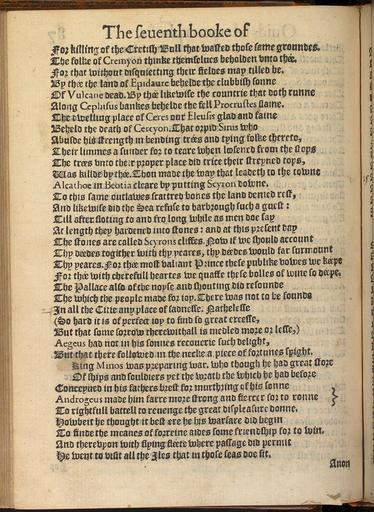 The seuenth booke of
For killing of the Cretish Bull that wasted those same groundes.
The folke of Cremyon thinke themselues beholden vnto thée.
For that without disquietting their fieldes may tilled be.
By thée the land of Epidaure behelde the clubbish sonne
Of Vulcane dead. By thée likewise the countrie that doth runne
Along Cephisus bankes behelde the fell Procrustes slaine.
The dwelling place of Ceres our Eleusis glad and faine
Beheld the death of Cercyon. That orpid Sinis who
Abusde his strength in bending trées and tying folke thereto,
Their limmes a sunder for to teare when losened from the stops
The trées vnto their proper place did trice their streyned tops,
Was killde by thée. Thou made the way that leadeth to the towne
Alcathoe in Beotia cleare by putting Scyron downe.
To this same outlawes scattred bones the land denied rest,
And likewise did the Sea refuse to harbrough such a guest:
Till after floting to and fro long while as men doe say
At length they hardened into stones: and at this present day
The stones are called Scyrons cliffes. Now if we should account
Thy déedes togither with thy yeares, thy déedes would far surmount
Thy yeares. For thée most valiant Prince these publike vowes we kéepe
For thée with chéerefull heartes we quaffe these bolles of wine so déepe,
The Pallace also of the noyse and shouting did resounde
The which the people made for ioy. There was not to be founde
In all the Citie any place of sadnesse. Nathelesse
(So hard it is of perfect ioy to find so great excesse,
But that some sorrow therewithall is medled more or lesse,)
Aegeus had not in his sonnes recouerie such delight,
But that there followed in the necke a piece of fortunes spight.
King Minos was preparing war. who though he had great store
Of ships and souldiers yet the wrath the which he had before
Conceyued in his fathers brest for murthring of his sonne
Androgeus made him farre more strong and fiercer for to ronne
To rightfull battell to reuenge the great displeasure donne.
Howbeit he thought it best ere he his warfare did begin
To finde the meanes of forreine aides some friendship for to win.
And therevpon with flying fléete where passage did permit
He went to visit all the Iles that in those seas doe sit.
Anon